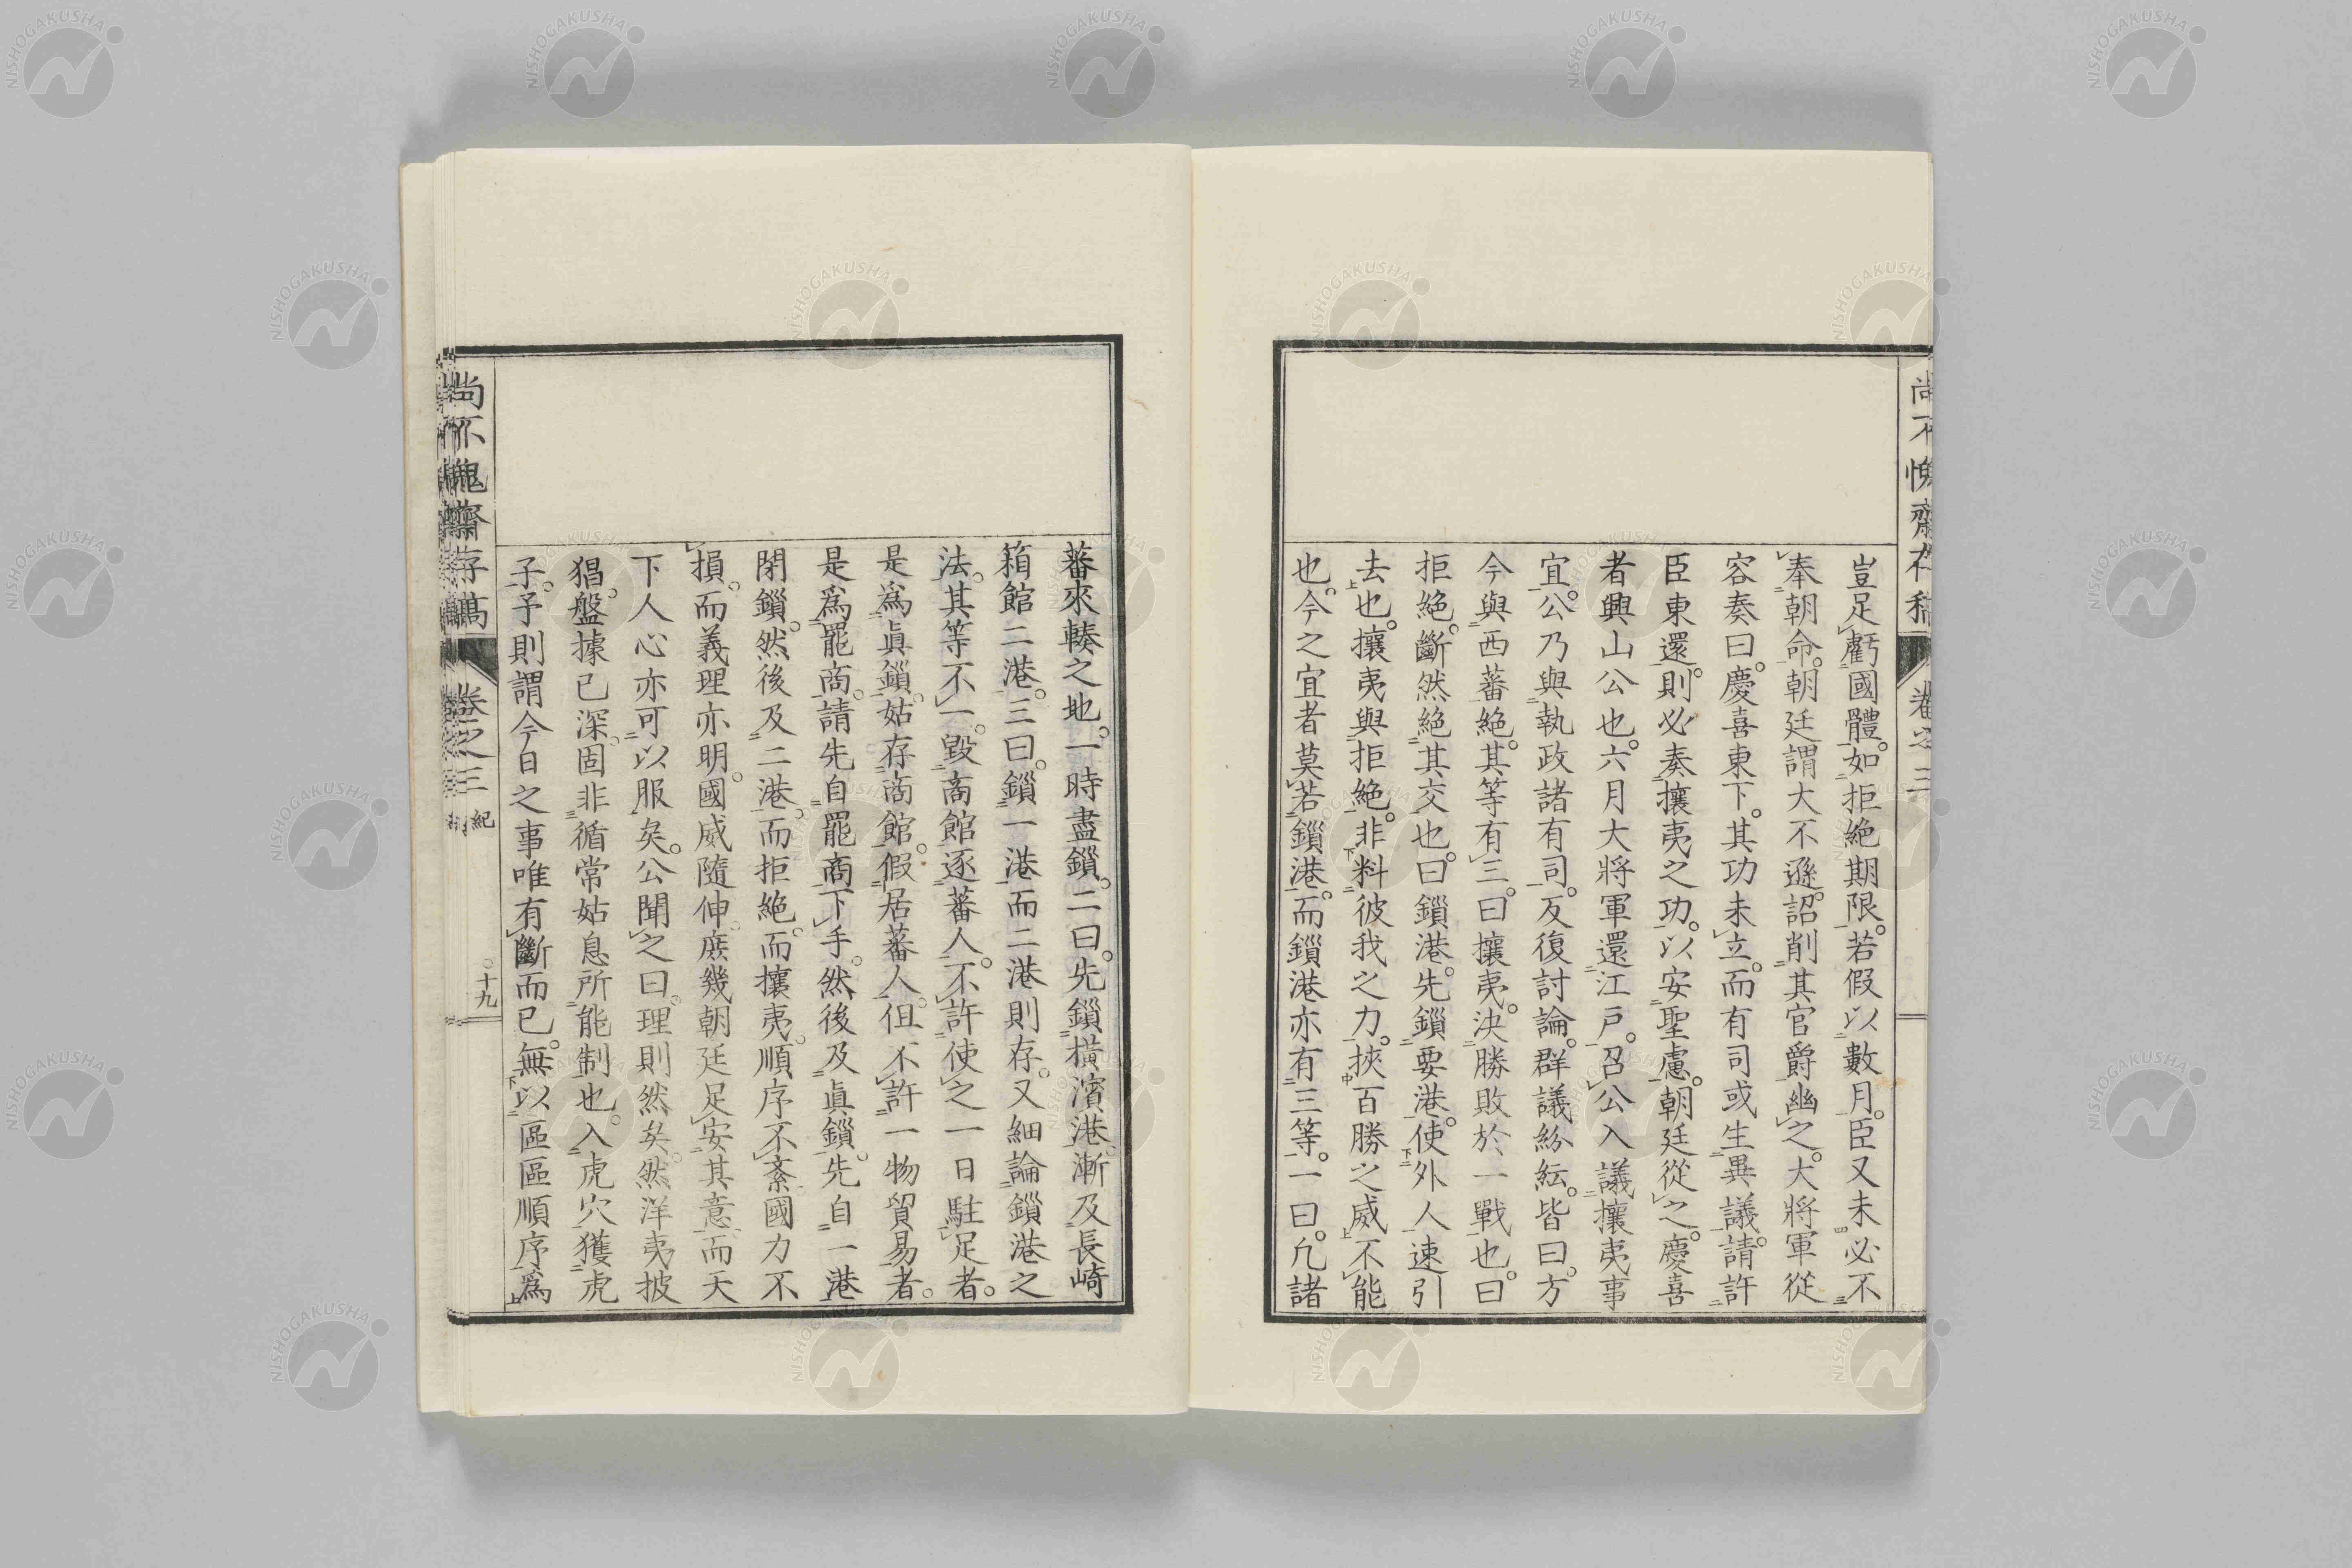 尚不愧齋存稿 卷之三
豈足虧國體。如拒絶期限。若假以數月。臣又未必不
奉朝命。朝廷謂大不遜。詔削其官爵幽之。大將軍從
容奏曰。慶喜東下。其功未立。而有司或生異議。請許
臣東還。則必奏攘夷之功。以安聖慮。朝廷從之。慶喜
者興山公也。六月大將軍還江戸。召公入議攘夷事
宜。公乃與執政諸有司。反復討論。群議紛紜。皆曰。方
今與西蕃絶。其等有三。曰攘夷。決勝敗於一戰也。曰
拒絶。斷然絶其交也。曰鎖港。先鎖要港。使外人速引
去也。攘夷與拒絶。非料彼我之力。挾百勝之威。不能
也。今之宜者莫若鎖港。而鎖港亦有三等。一曰。凡諸
蕃來輳之地。一時盡鎖。二曰。先鎖橫濱港。漸及長崎
箱館二港。三曰。鎖一港而二港則存。又細論鎖港之
法。其等不一。毀商館逐蕃人。不許使之一日駐足者。
是爲眞鎖。姑存商館。假居蕃人。但不許一物貿易者。
是爲罷商。請先自罷商下手。然後及眞鎖。先自一港
閉鎖。然後及二港。而拒絶。而攘夷。順序不紊。國力不
損。而義理亦明。國威隨伸。庶幾朝廷足安其意。而天
下人心亦可以服矣。公聞之曰。理則然矣。然洋夷披
猖。盤據已深。固非循常姑息所能制也。入虎穴獲虎
子。予則謂今日之事唯有斷而已。無以區區順序爲
尚不愧齋存稿 卷之三 紀 十九
NISHOGAKUSHA